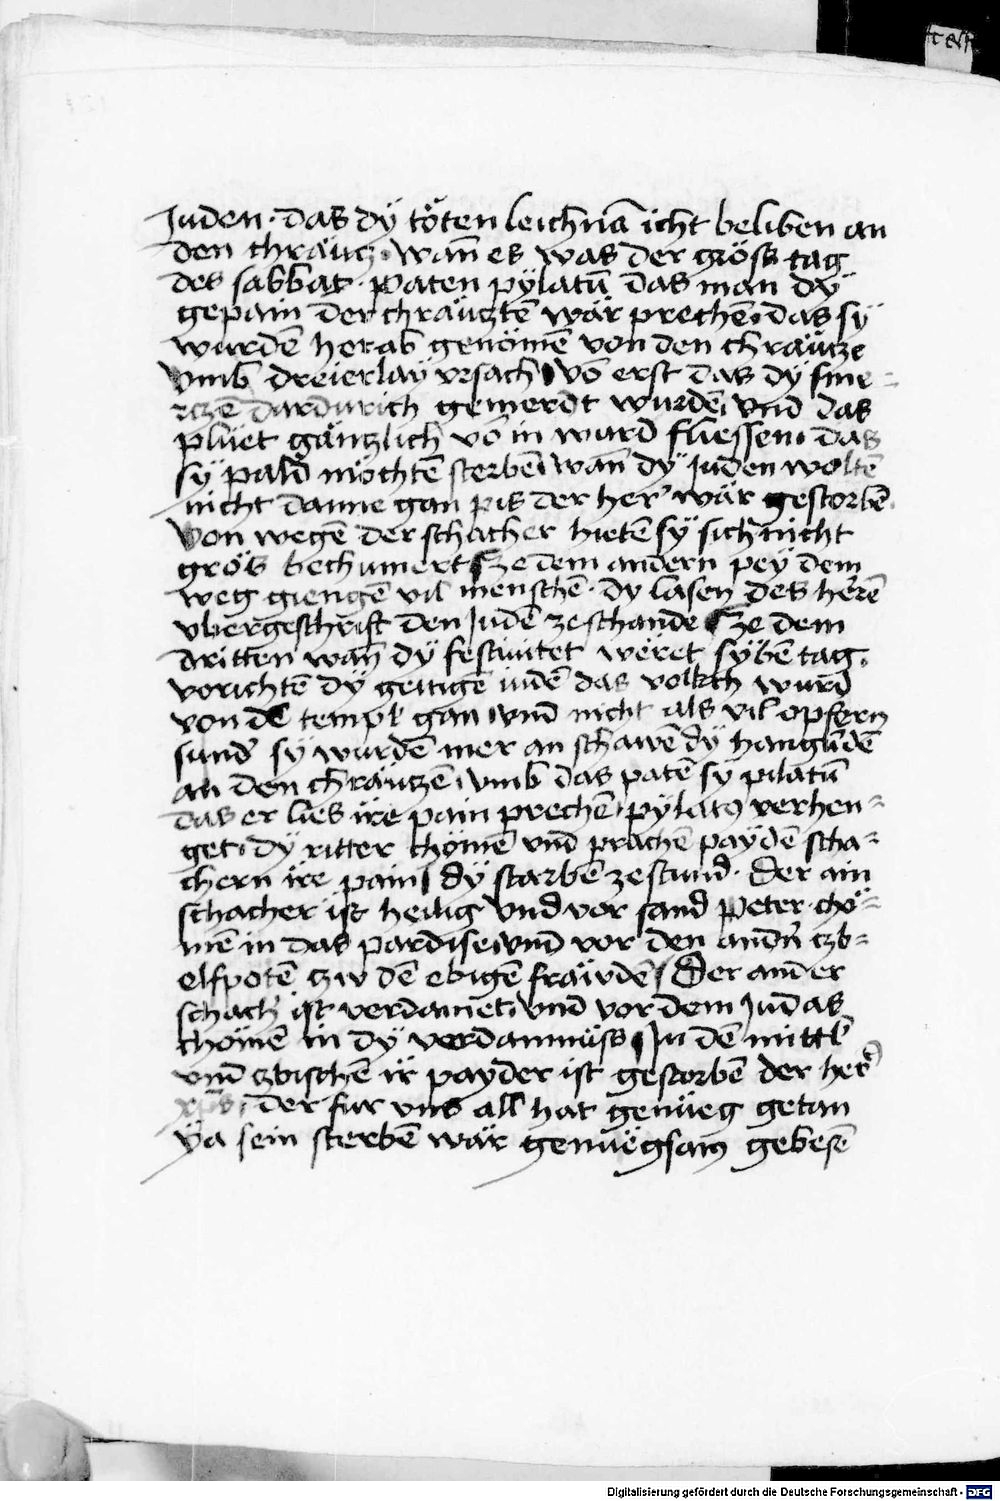 Juden · das dÿ töten leichnā icht beliben an
den chräutz · wan̄ es was der gröss tag
des sabbat · paten pÿlatū das man dÿ
gepain der chräutztē wär prechē · das sÿ
wurdē herab genömē von den chräutze
vmb dreierlaÿ vrsach vō erst das dÿ sme⸗
rczē dardurich gemerdt wurdē vnd das
plüet gäntzlich vō in wurd fliessen · das
sÿ pald möchtē sterbē wan̄ dÿ Juden woltē
nicht danne gan pis der her' wär gestorbē
Von wegē der schacher hietē sÿ sich nicht
grös bechumert Ze dem andern peÿ dem
weg giengē vil menschē · dy lasen des herrē
vbergeschrift den Judē ze schande Ze dem
dritten wan̄ dÿ festiuitet wëret sÿbē tag ·
vorichtē dÿ geitigē iudē das volkch wurd
von dē templ gan vnd nicht als vil opfern
sund' sÿ wurdē mer an schawē dÿ hangūdē
an den chräutzē · vmb das patē sÿ pilatū
das er lies ire pain prechē · pÿlatꝰ verhen⸗
get · dÿ ritter chömē vnd prachē paÿdē scha⸗
chern ire pain dÿ starbē ze stund · Der ain
schacher ist heilig vnd vor sand Peter chö⸗
mē in das pardise vnd vor den and'n̄ czb⸗
elfpotē tzw dē ebigē fräwdē Der ander
schach' ist verdamēt · vnd vor dem Judas
chömē in dÿ verdamnüss In dē mittl
vnd czbischē ir payder ist gestorbē der her'
xp̄s · der fur vns all hat genüeg getan
ÿa sein sterbē wär genüegsam gebesē
Digitalisierung gefördert durch die Deutsche Forschungsgemeinschaft - DFG